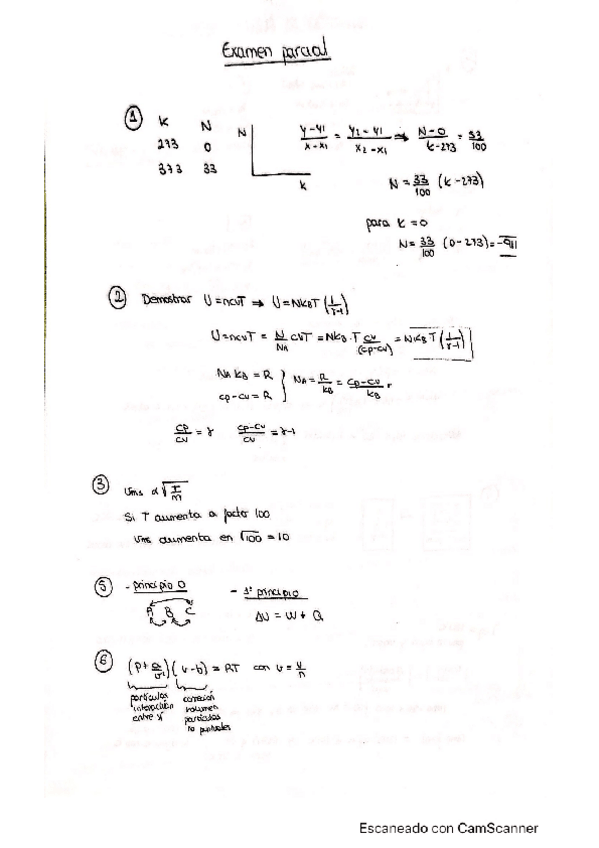 Examen parcial
① K N
273 0
373 33
N
K
y-y1/x-x1 = y2-y1/x2-x1 ⇒ N-0/K-273 = 33/100
N = 33/100 (K-273)
para K = 0
N = 33/100 (0-273) =
② Demostrar U = ncvT ⇒ U = NKBT (1/γ-1)
U = ncvT = N/NA cvT = NKB·T cv/(cp-cv) = NKBT (1/γ-1)
NA KB = R
cp-cv = R
NA = R/KB = cp-cv/KB
cp/cv = γ cp-cv/cv = γ-1
③ vrms α √T/m
Si T aumenta a factor 100
vrms aumenta en √100 = 10
⑤ - principio 0 - 1º principio
A B C
ΔU = W + Q
⑥ (P + a/v²)(v-b) = RT con v = V/n
partículas interacción entre sí
corrección volumen partículas no puntuales
Escaneado con CamScanner